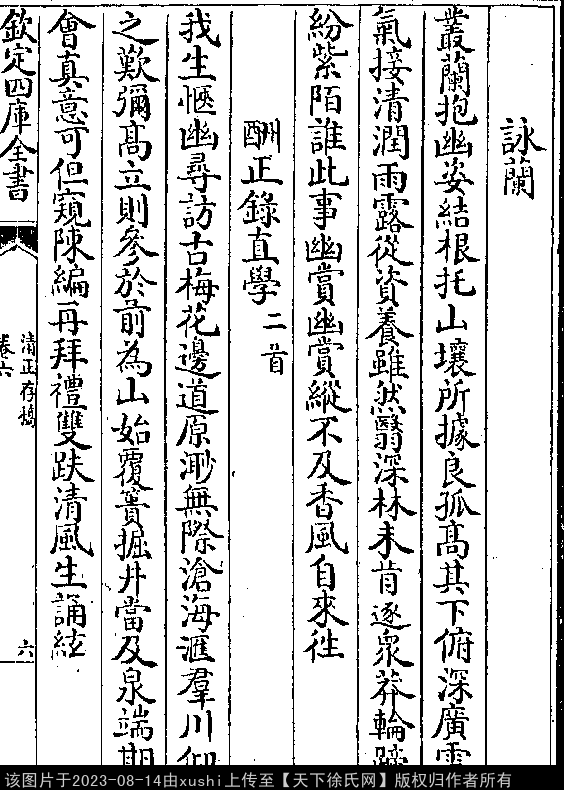 詠蘭
叢蘭抱幽姿結根托山壤所據良孤髙其下俯深廣
氣接清潤雨露從資養雖然翳深林未肯逐衆莽輪蹄
紛紫陌誰此事幽賞幽賞縱不及香風自來徃
酬正錄直學二首
我生愜幽尋訪古梅花邊道原渺無際滄海滙羣川仰
之歎彌髙立則參於前為山始覆簣掘井當及泉端期
會真意可但窺陳編再拜禮雙趺清風生誦絃
欽定四庫全書
清正存稿
卷六
六
该图片于2023-08-14由xushi上传至【天下徐氏网】版权归作者所有